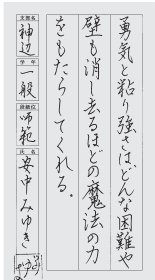 勇気と粘り強さは、どんな困難や
壁も消し去るほどの魔法の力
をもたらしてくれる。
支部名
神辺
学年
一般
段級位
師範
氏名
安中みゆき